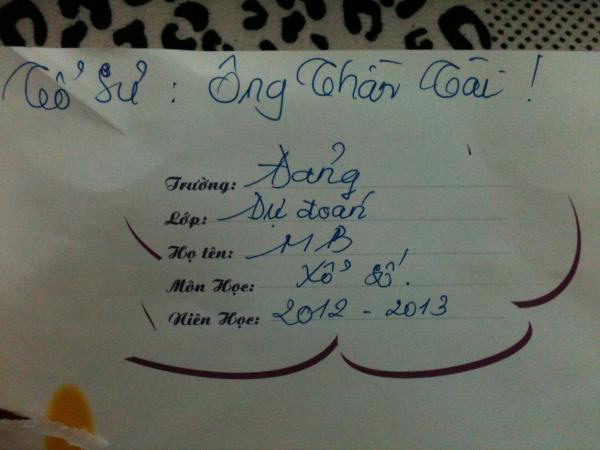 Tổ Sư : Ông Thần Tài !
Trường: Đảng
Lớp: Dự đoán
Họ tên: MB
Môn Học: Xổ số !
Niên Học: 2012 - 2013